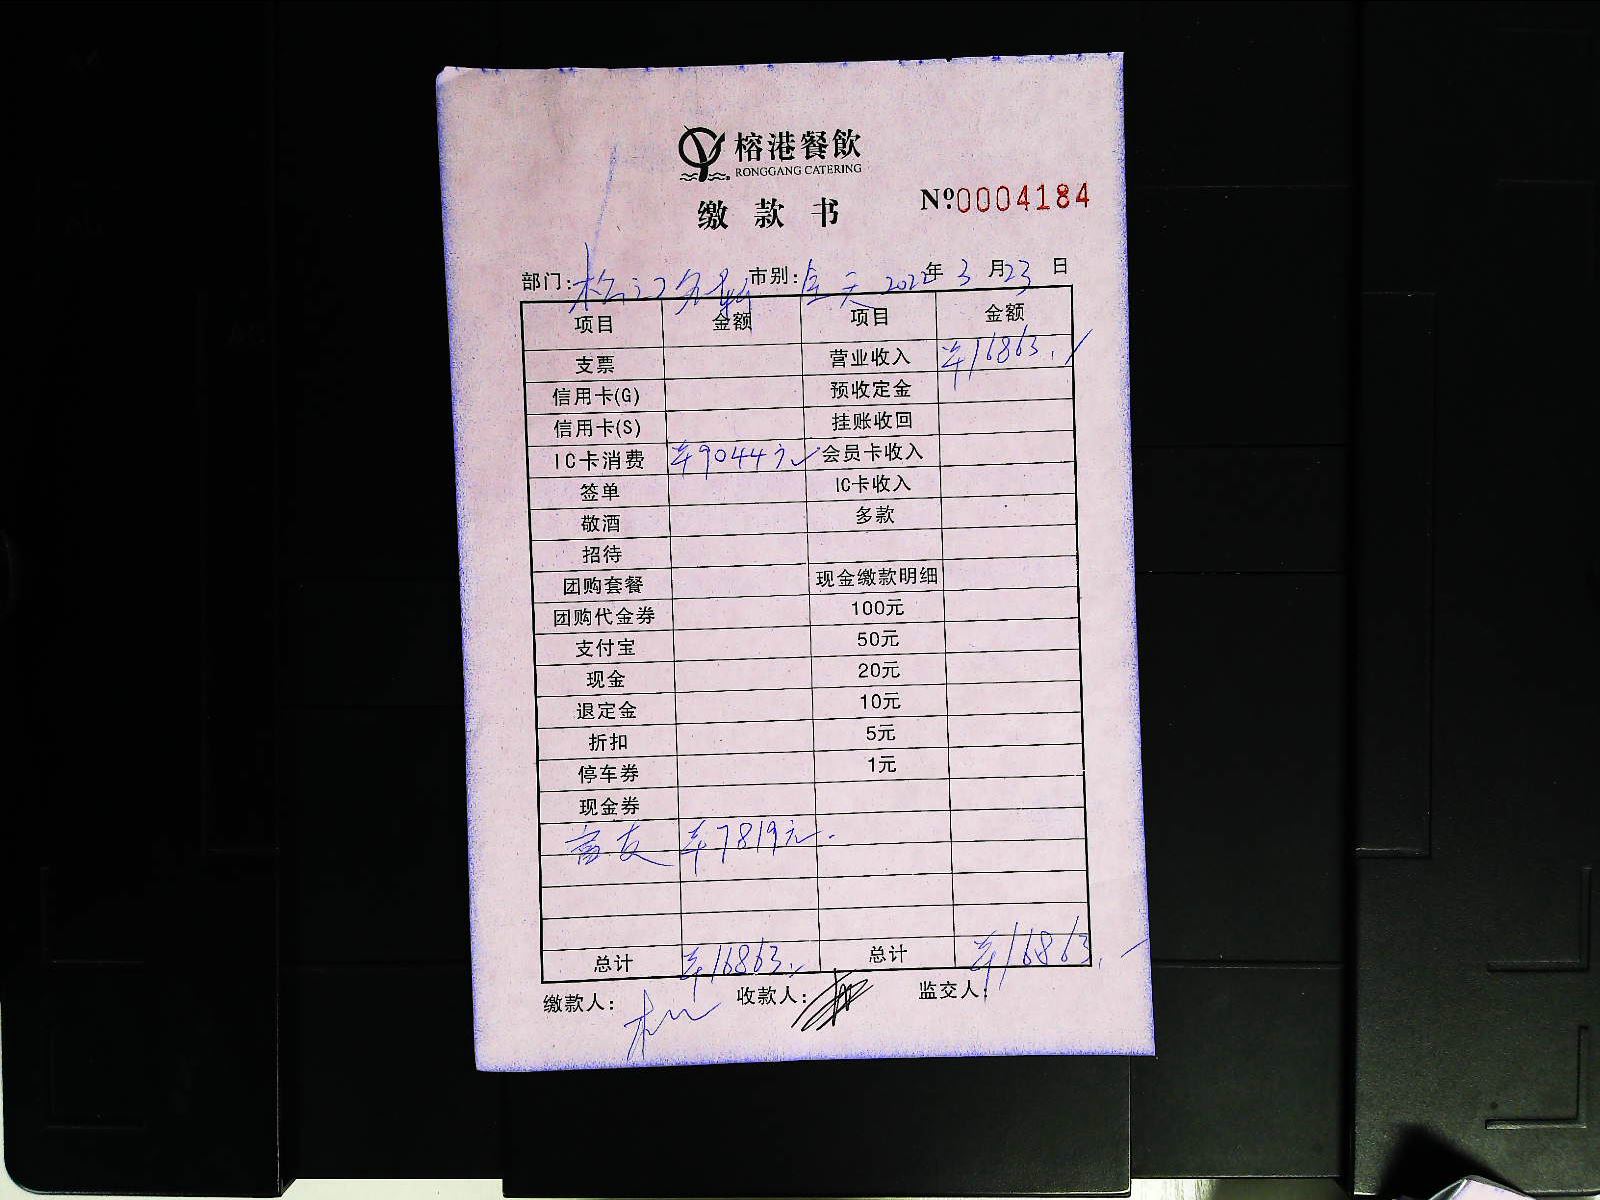 榕港餐飲
RONGGANG CATERING
缴款书
Nº.0004184
部门: 市别: 全天 2022年3月23日
项目 金额 项目 金额
支票 营业收入 ¥16863.
信用卡(G) 预收定金
信用卡(S) 挂账收回
IC卡消费 ¥9044元 会员卡收入
签单 IC卡收入
敬酒 多款
招待
团购套餐 现金缴款明细
团购代金券 100元
支付宝 50元
现金 20元
退定金 10元
折扣 5元
停车券 1元
现金券
富友 ¥7819元.
总计 ¥16863. 总计 ¥16863.
缴款人: 收款人: 监交人: